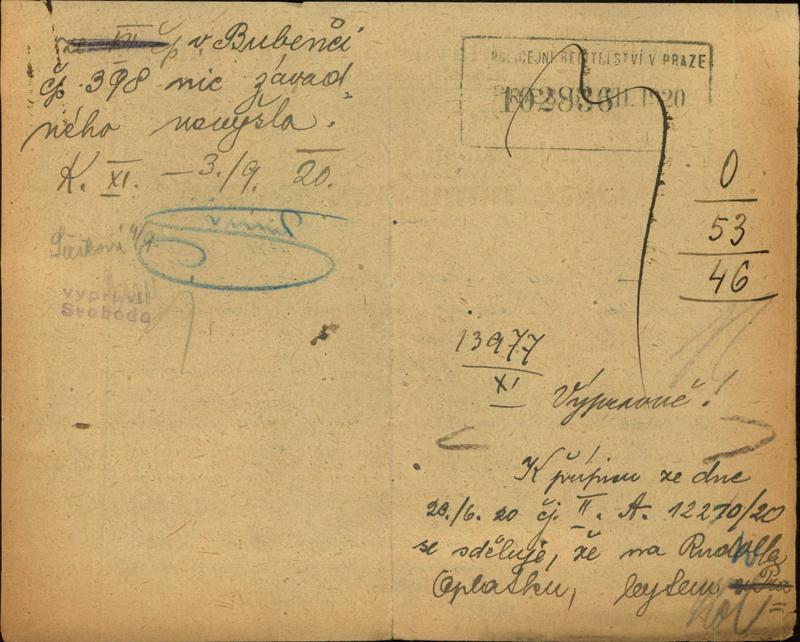 v Bubenči
čp. 398 nic závad-
ného nevyšlo.
K. XI. – 3./9. 20.
9/9.
vypravil
Svoboda
POLICEJNÍ ŘEDITELSTVÍ V PRAZE
102936 1920
0
53
46
13977
XI
Výpravně!
K přípisu ze dne
23./6. 20 čj. II. A. 12270/20
se sděluje, že na Rudolfa
Oplatku, bytem